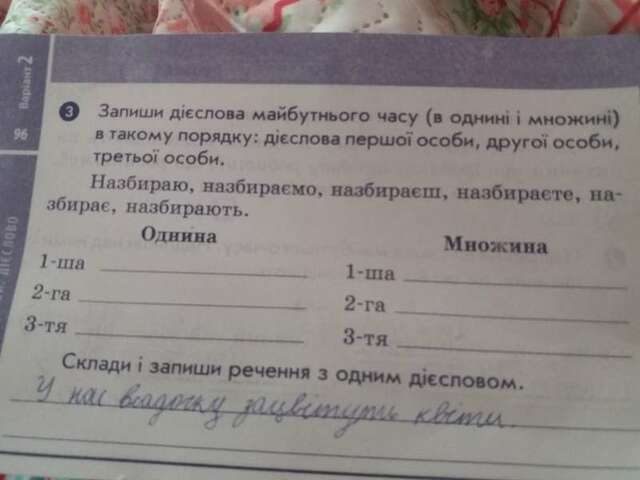 Варіант 2
96
ДІЄСЛОВО
3 Запиши дієслова майбутнього часу (в однині і множині)
в такому порядку: дієслова першої особи, другої особи,
третьої особи.
Назбираю, назбираємо, назбираєш, назбираєте, на-
збирає, назбирають.
Однина Множина
1-ша 1-ша
2-га 2-га
3-тя 3-тя
Склади і запиши речення з одним дієсловом.
У нас в садочку зацвітуть квіти.